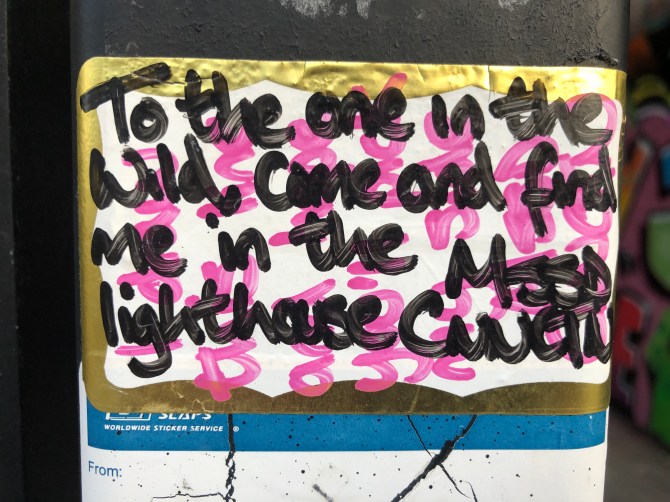 To the one in the
Wild. Come and find
me in the
lighthouse
SLAPS
WORLDWIDE STICKER SERVICE ®
From: